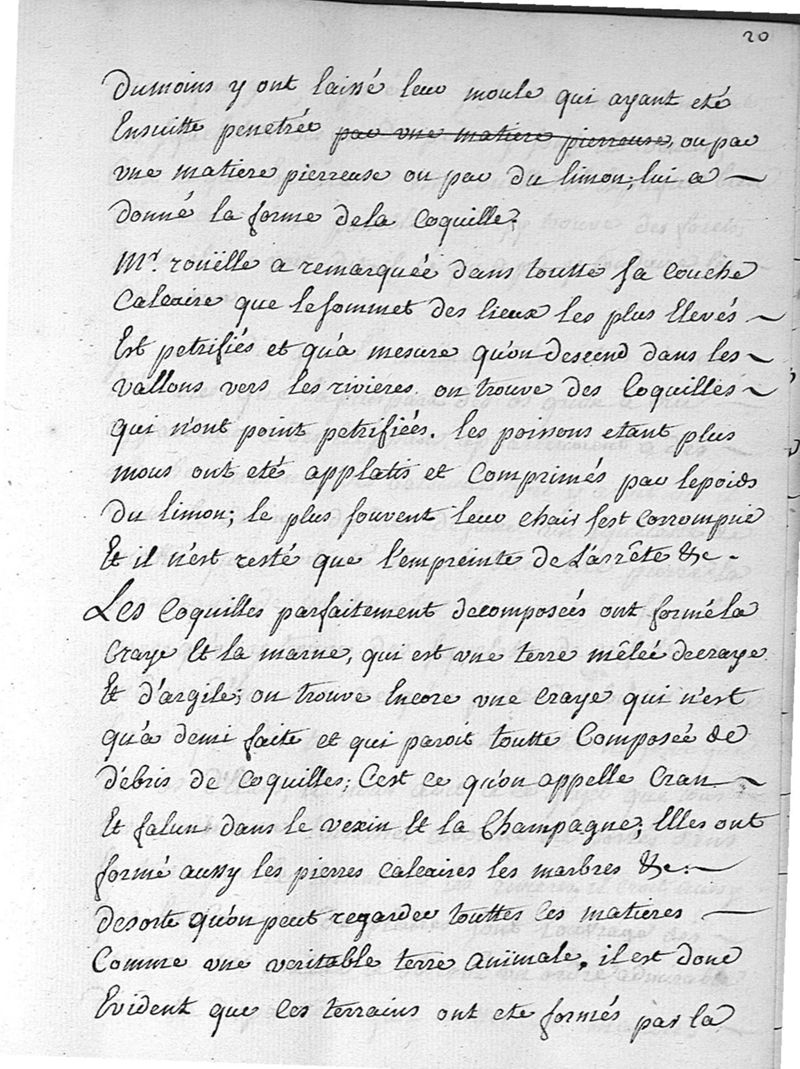 20
Dumoins y ont laissé leur moule qui ayant eté
Ensuitte penetrée par une matiere pierreuse, ou par
une matiere pierreuse ou par du limon; lui a
donné la forme dela Coquille.
Mr. roüelle a remarquée dans toutte sa couche
Calcaire que lesommet des lieux les plus Elevés
Est petrifiés et qu'a mesure qu'on descend dans les
vallons vers les rivieres on trouve des Coquilles
qui n'ont point petrifiées. les poissons etant plus
mous ont eté applatis et Comprimés par lepoids
du limon; le plus souvent leur chair s'est corrompüe
Et il n'est resté que l'empreinte de L'arrête &c.
Les Coquilles parfaitement decomposées ont formé la
Craye Et la marne, qui est une terre mêlée decraye
Et d'argile; on trouve Encore une craye qui n'est
qu'a demi faite et qui paroit toutte Composée de
débris de Coquilles; C'est ce qu'on appelle Cran
Et falun dans le vexin Et la Champagne; Elles ont
formé aussy les pierres calcaires les marbres &c.
desorte qu'on peut regarder touttes ces matieres
Comme une veritable terre animale, il est donc
Evident que ces terrains ont eté formés par la